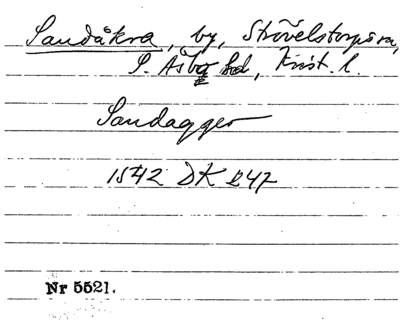 Sandåkra, by, Strövelstorps sn,
S. Åsbo hd, Krist. l.
Sandagger
1542 DK 247
Nr 5521.